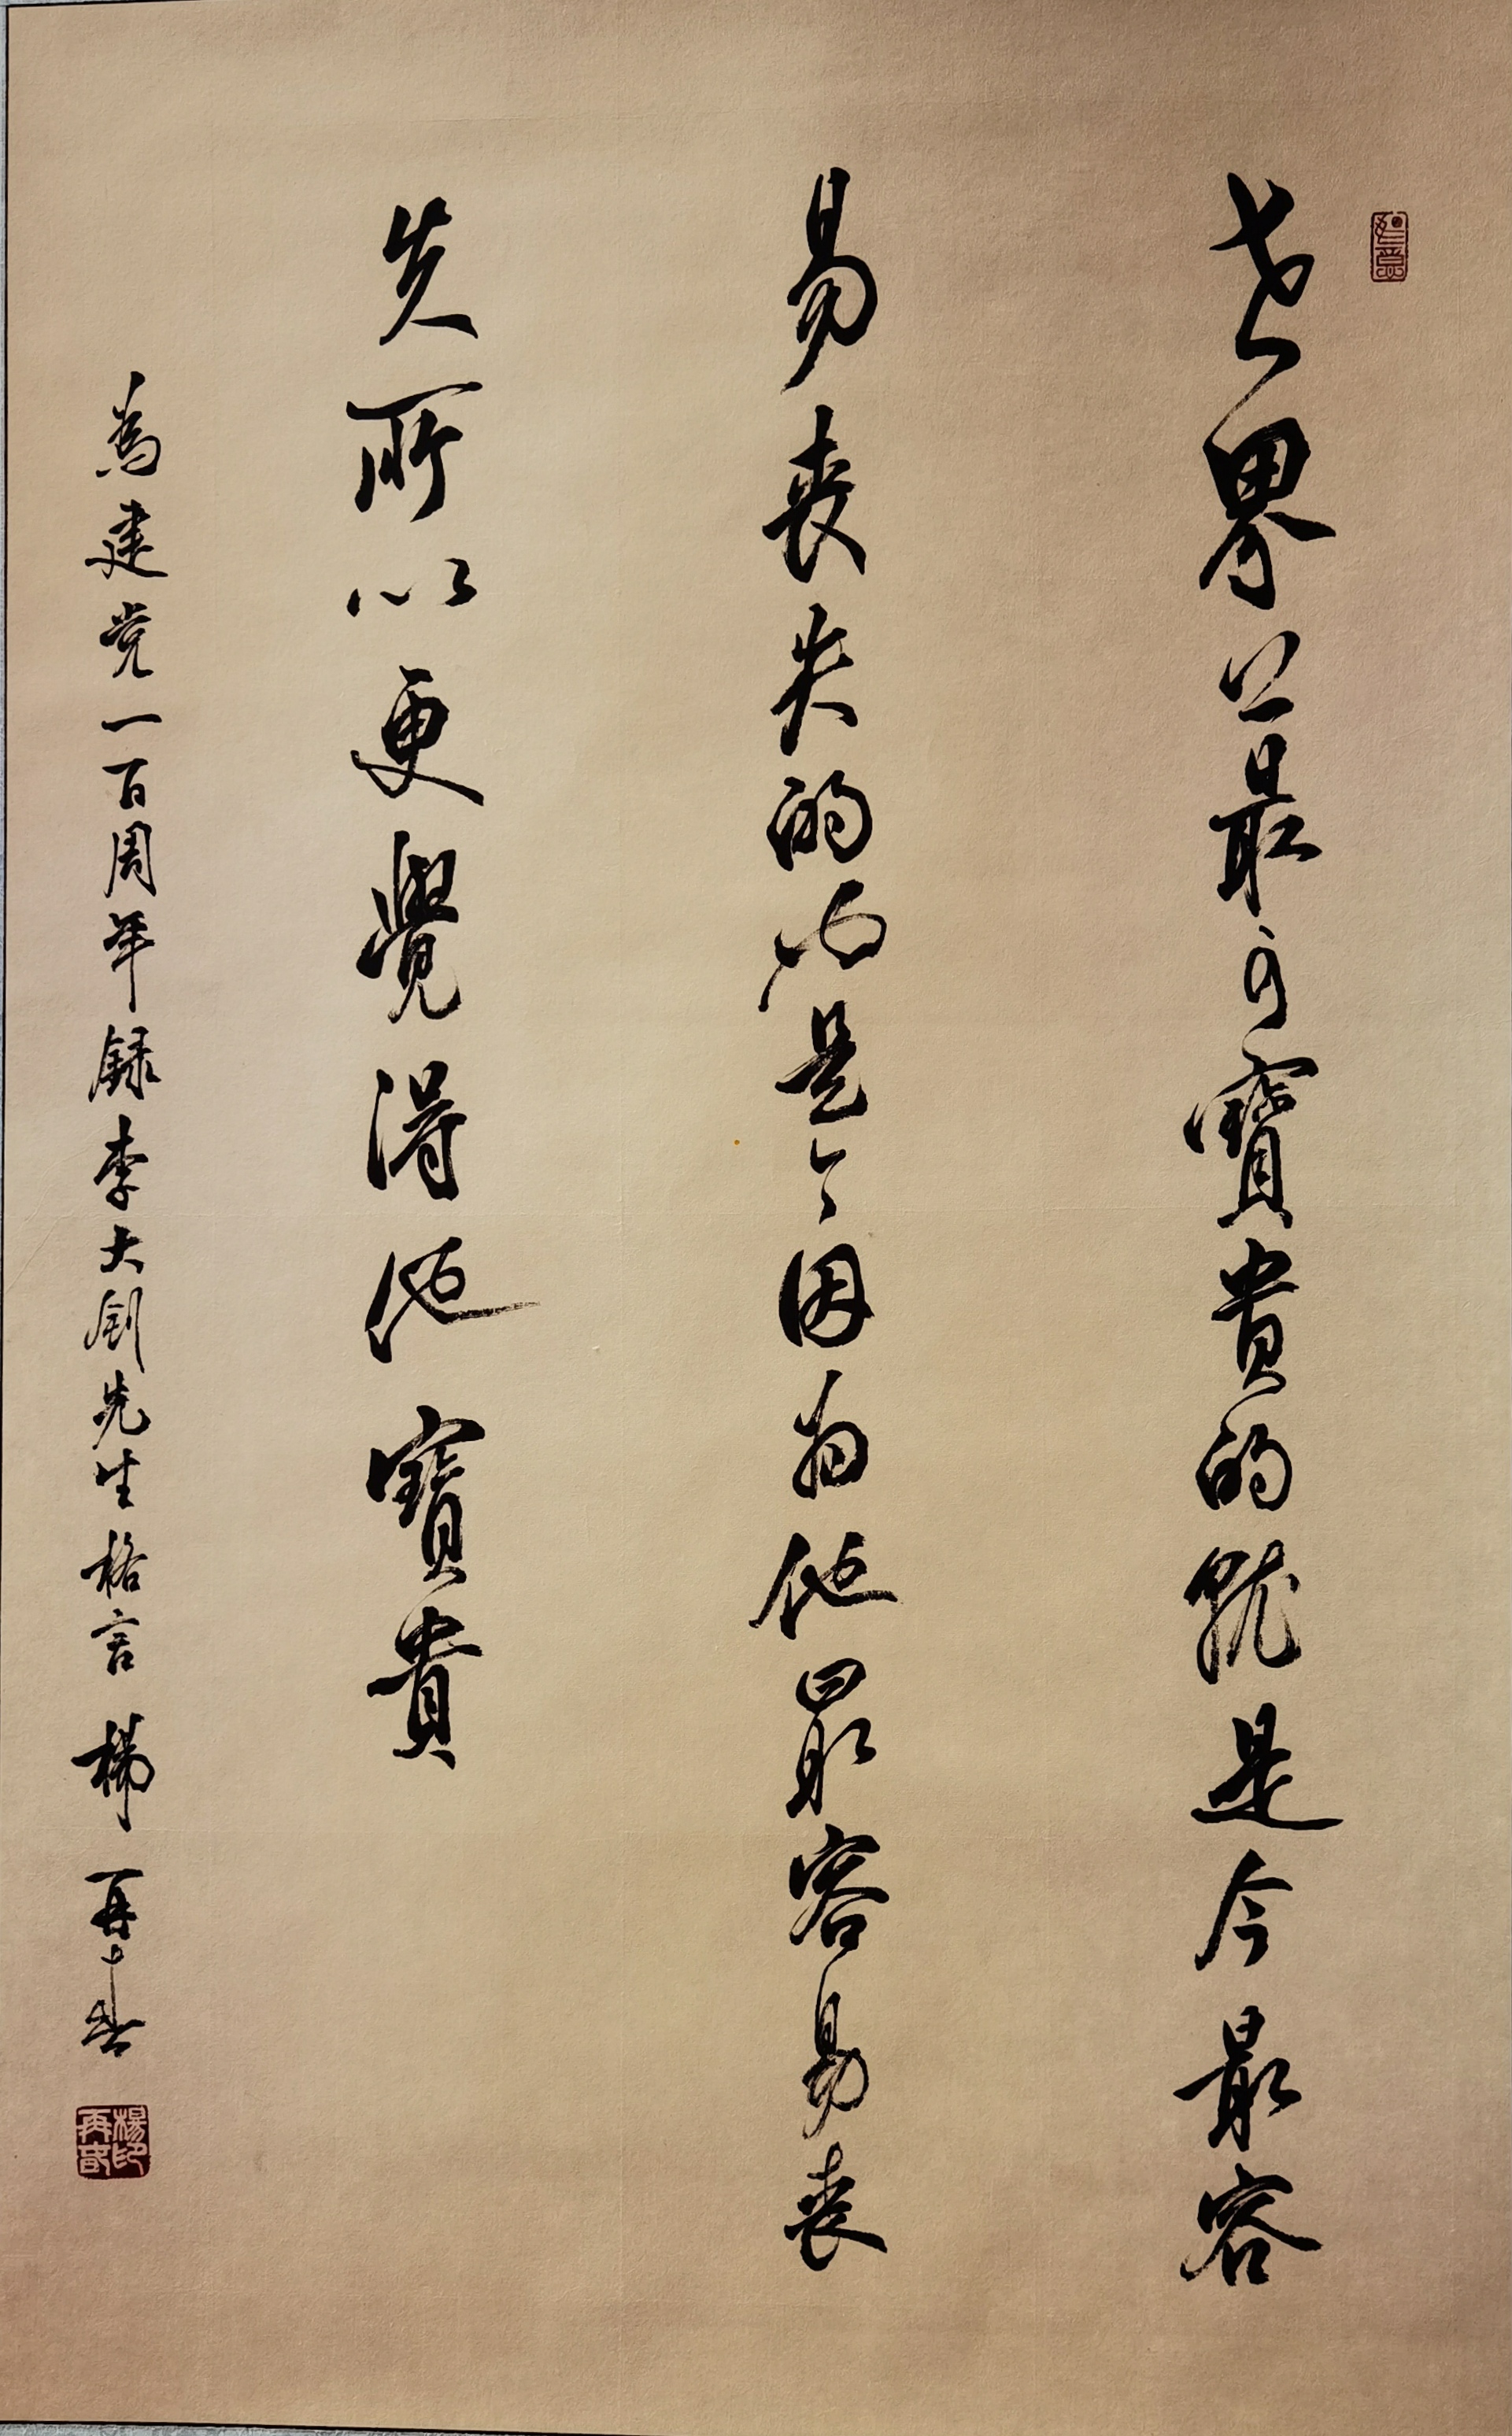 如意
世界上最可寶貴的就是今最容
易丧失的也是今因为他最容易丧
失所以更覺得他寶貴
為建党一百周年録李大钊先生格言 楊再春
楊再春印